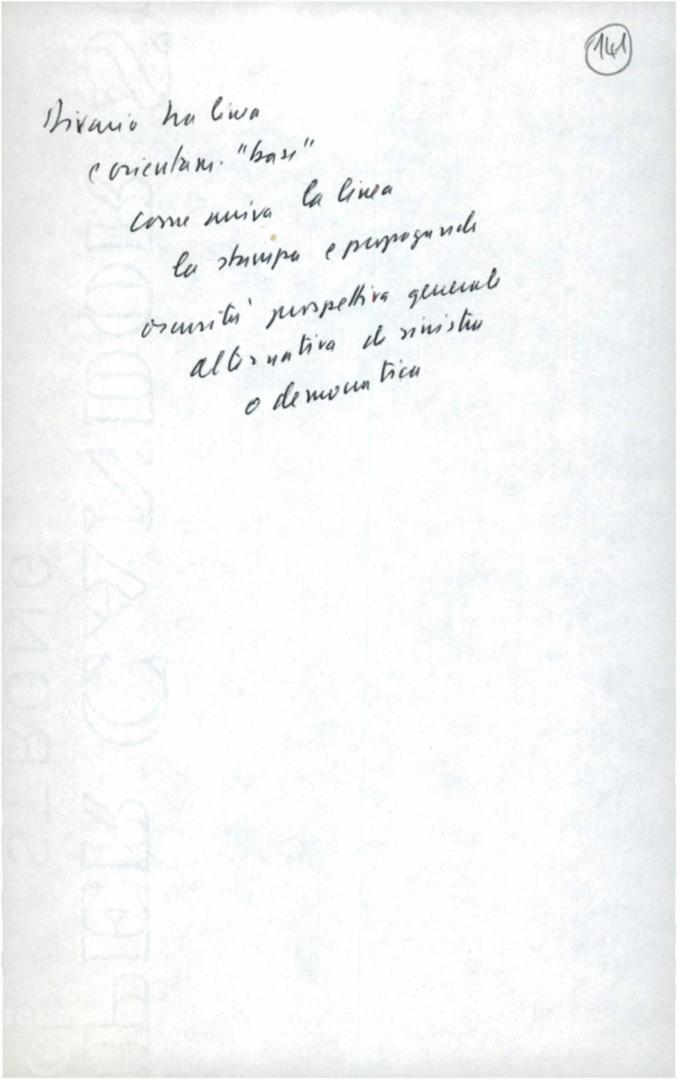 141
Divario tra linea
e orientam. "base"
come arriva la linea
la stampa e propaganda
oscurità prospettiva generale
alternativa di sinistra
o democratica
STRONG